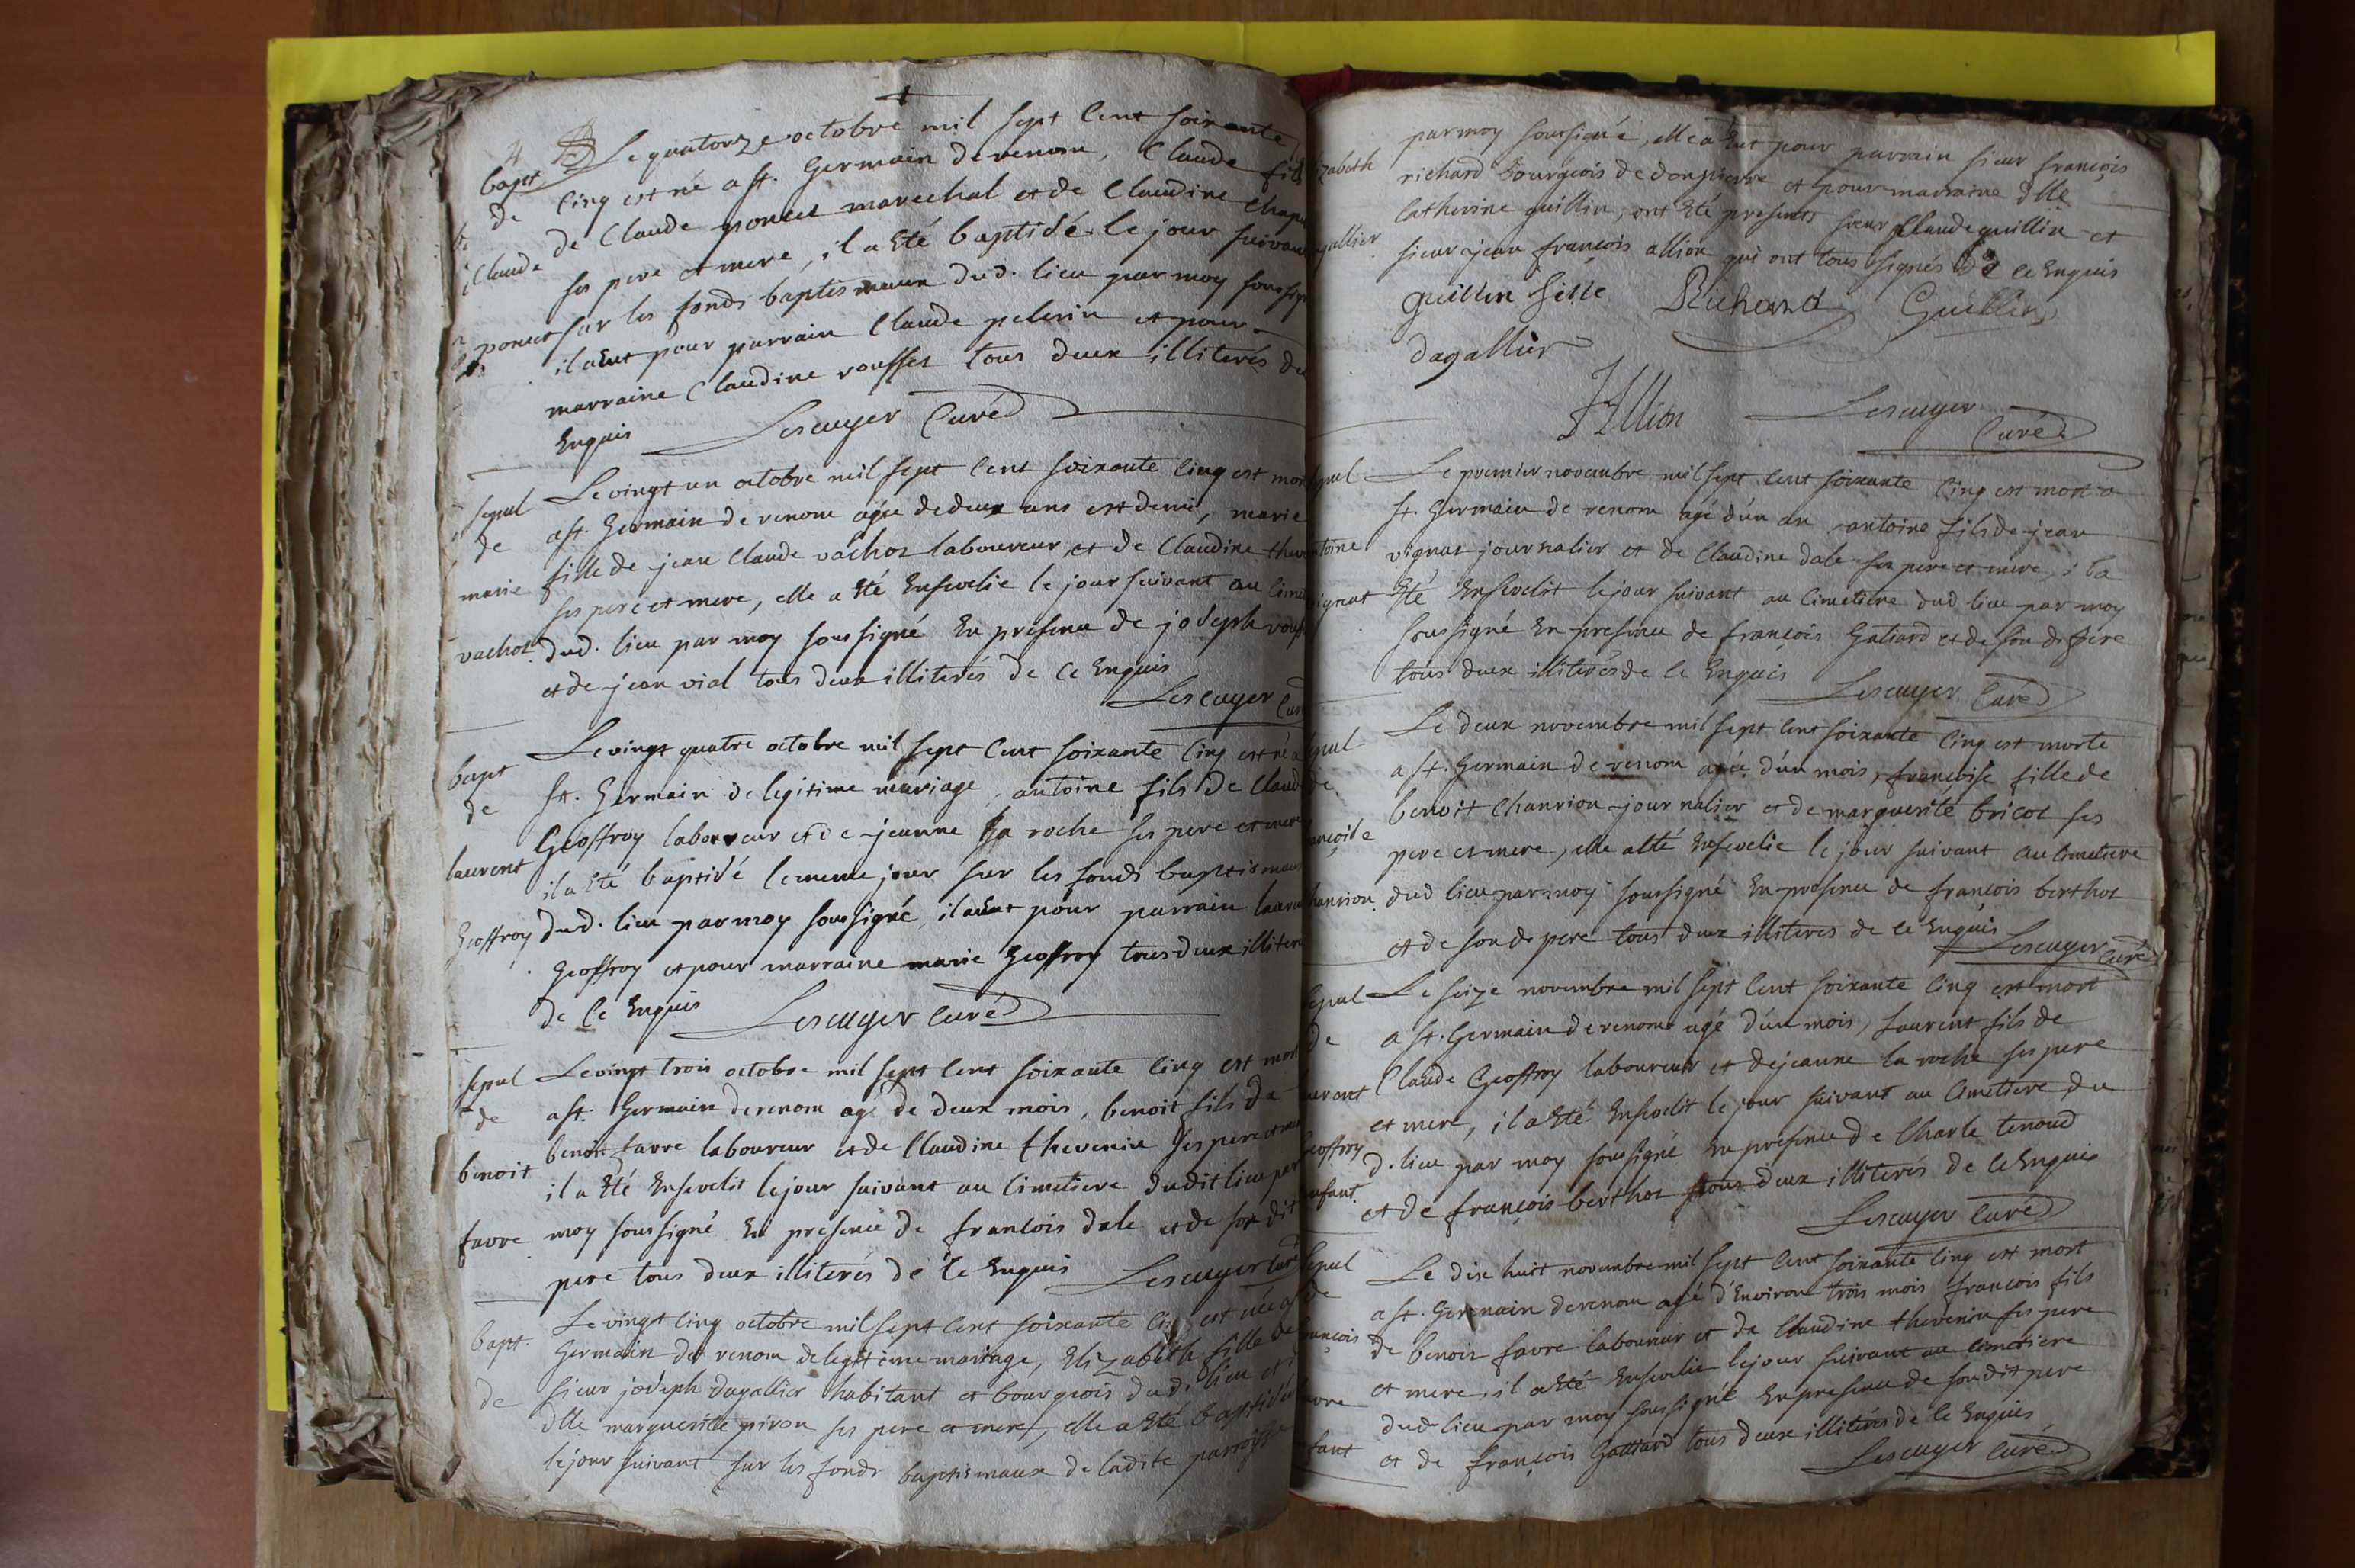 Le quatorze octobre mil sept cent soixante
bapt
cinq est né a st. Germain de renom, Claude fils
de
de Claude poncet marechal et de Claudine
Claude
ses pere et mere, il a Eté baptisé le jour suivant
poncet
sur les fonds baptismaux dud. lieu par moy
il a Eut pour parrain Claude pelerin et pour
marraine Claudine rousset tous deux illiterés de
ce Enquis
Lescuyer Curé
sepul
Le vingt un octobre mil sept cent soixante cinq est
a st. Germain de renom agée de deux ans et demi, marie
de
fille de jean Claude vachot laboureur et de Claudine
marie
ses pere et mere, elle a Eté Ensevelie le jour suivant au
vachot
dud. lieu par moy soussigné En presence de joseph
et de jean vial tous deux illiterés de ce Enquis
Lescuyer Curé
bapt
Le vingt quatre octobre mil sept cent soixante cinq est né a
de
st. Germain de legitime mariage, antoine fils de Claude
Geoffroy laboureur et de jeanne la roche ses pere et mere
laurent
il a Eté baptisé le meme jour sur les fonds
Geoffroy
dud. lieu par moy soussigné, il a Eut pour parrain
Geoffroy et pour marraine marie Geoffroy tous deux
de ce Enquis
Lescuyer curé
sepul
Le vingt trois octobre mil sept cent soixante cinq est mort
de
a st. Germain de renom agé de deux mois, benoit fils de
benoit favre laboureur et de Claudine thevenin ses pere et
benoit
il a Eté Ensevelit le jour suivant au Cimetiere dudit lieu par
favre
moy soussigné En presence de francois dale et de son dit
pere tous deux illiterés de ce Enquis
Lescuyer Curé
bapt.
Le vingt cinq octobre mil sept cent soixante est née a
Germain de renom de legitime mariage, Elizabeth fille de
de
sieur joseph dagallier habitant et bourgeois dud. lieu et
dlle marguerite piron ses pere et mere, elle a Eté baptisée
le jour suivant sur les fonds baptismaux de ladite parroisse
par moy soussigné, elle a Eut pour parrain sieur françois
richard bourgeois de donpierre et pour marraine dlle
Catherine guillin, ont Eté presents sieur Claude guillin et
sieur jean françois allion qui ont tous signés de ce Enquis
guillin fille Richard Guillin
dagallier
Allion
Lescuyer
Curé
Le premier novembre mil sept cent soixante cinq est mort a
st. Germain de renom agé d'un an antoine fils de jean
vignat journalier et de Claudine dale ses pere et mere, il a
Eté Ensevelit le jour suivant au Cimetiere dud lieu par moy
soussigné En presence de françois Galiard et de son d. pere
tous deux illiterés de ce Enquis
Lescuyer Curé
Le deux novembre mil sept cent soixante cinq est morte
a st. Germain de renom agée d'un mois, françoise fille de
benoit Chanrion journalier et de marguerite bricot ses
pere et mere, elle a Eté Ensevelie le jour suivant au Cimetiere
dud lieu par moy soussigné En presence de francois berthot
et de son d. pere tous deux illiterés de ce Enquis
Lescuyer Curé
Le seize novembre mil sept cent soixante cinq est mort
a st. Germain de renom agé d'un mois, Laurent fils de
Claude Geoffroy laboureur et de jeanne la roche ses pere
et mere, il a Eté Ensevelit le jour suivant au Cimetiere du
d. lieu par moy soussigné En presence de Charle tenoud
et de françois berthot tous deux illiterés de ce Enquis
Lescuyer Curé
Le dix huit novembre mil sept cent soixante cinq est mort
a st. Germain de renom agé d'Environ trois mois françois fils
de benoit favre laboureur et de Claudine thevenin ses pere
et mere, il a Eté Ensevelie le jour suivant au cimetiere
dud lieu par moy soussigné En presence de son dit pere
et de françois Galliard tous deux illiterés de ce Enquis
Lescuyer Curé